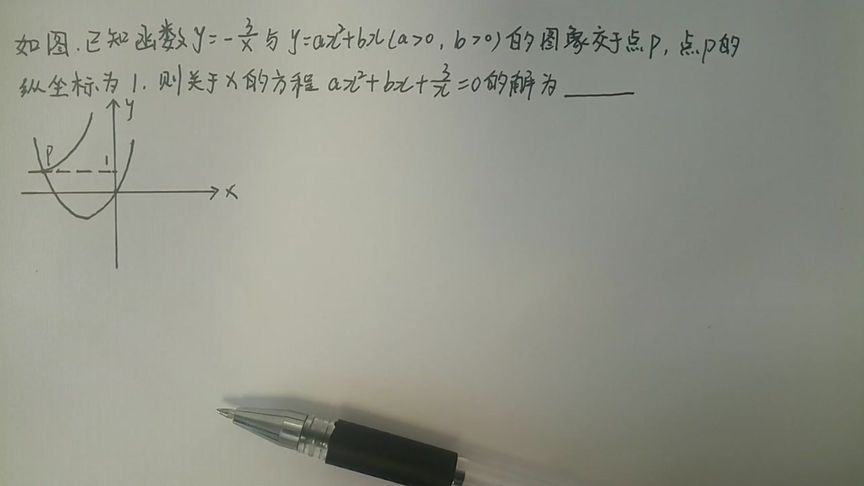 如图.已知函数y=-3/x与y=ax²+bx(a>0,b>0)的图象交于点P,点P的
纵坐标为1.则关于x的方程ax²+bx+3/x=0的解为____
y
P
1
x